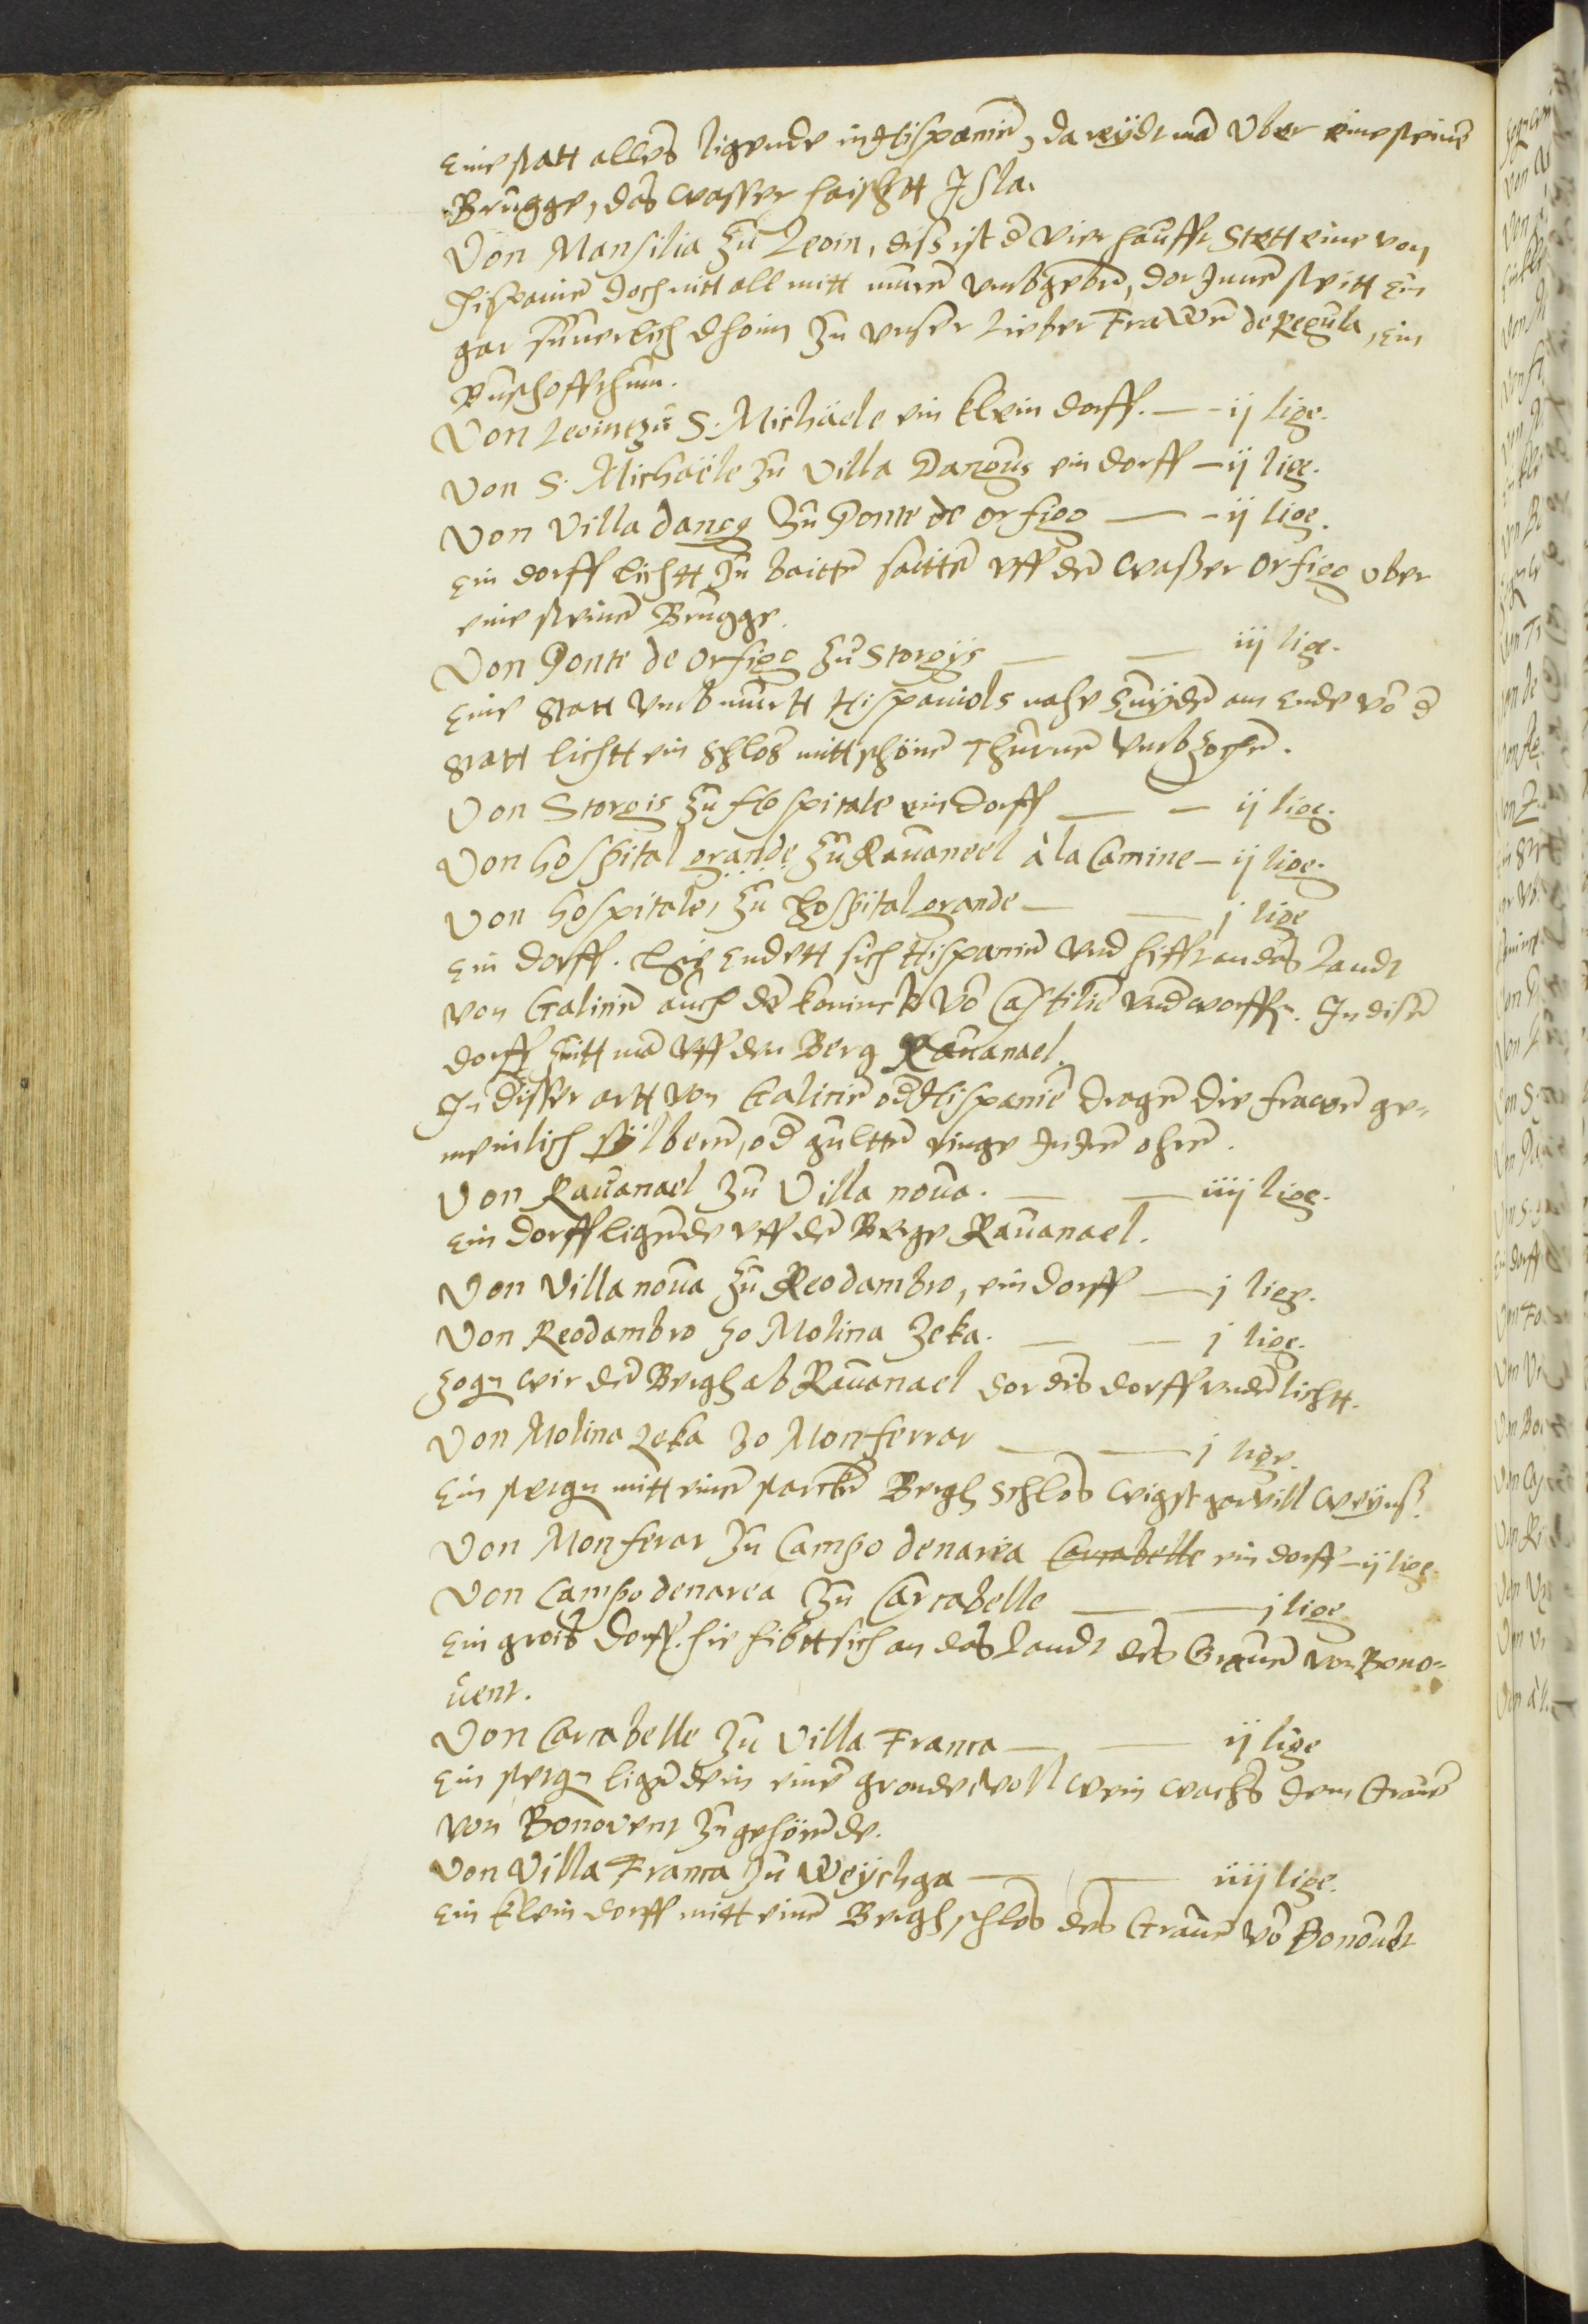 Eine statt alles ligende in Hispaniē, da reydt mā vber eine steinē
Brugge, das wasser haischtt Isla.
Von Mansilia zu Leoin, diss ist d vier haufft Stett eine von
Hispanien doch nitt all mitt muren vmbgeben, dor Innen steitt ein
gar suuerlich dhoim zu vnser lieber Frawē de Regula, ein
Buschoffthum.
Von Leoin zu S. Michäele ein klein dorff. — – ij lige.
Von S. Michäele zu Villa Dangus ein dorff – ij lige.
Von Villa dancg zu Ponte de orfigo — – ij lige.
Ein dorff lichtt zu baittē saittē vff dē waßer orfigo vber
eine steinē Brugge.
Von Ponte de orfigo zu Storgys — — iij lige.
Eine statt vmbmurtt Hispaniols nahe zuyden am ende vō d
statt lichtt ein schlos mitt schönē Thurnē vmbzochē.
Von Storgis zu Hospitale ein dorff — – ij lige.
Von hospital grande zu Rauaneel à la Camine – ij lige.
Von hospitale, zu hospital grande — — j lige
Ein dorff. Hie endett sich Hispaniē vnd hifft an das landt
von Galicië auch dē koninck vō Castiliē vndworffē. In disē
dorff zutt mā vff den Berg Rauanael.
In disser artt von Galiciē od Hispaniē dragē die frawē ge=
meinlich sylberē, od gultten ringe In irē ohrē.
Von Rauanael zu Villa noua. — — iiij lige.
Ein dorff ligēde vff dē Berge Rauanael.
Von Villa noua zu Reodambro, ein dorff — j lige.
Von Reodambro zo Molina zeka. — — j lige.
zogē wir dē Bergh ab Rauanael dor dis dorff vndē lichtt.
Von Molina zeka zo Monferrar — — j lige.
Ein stetgē mitt einē starckē Bergh schlos wigst gar vill weynß.
Von Monferar zu Campo denarea Carcabelle ein dorff – ij lige.
Von Campo denarea zu Carcabelle — — j lige
Ein grois dorff. hie hibtt sich an das landt des Grauē von Bono=
uent.
Von Carcabelle zu Villa Franca — — ij lige
Ein stetgē ligēde in einē gronde woll wein wachß dem Grauē
von Bonovent zugehörēde.
Von Villa Franca zu Weychga — — iiij lige.
Ein klein dorff mitt einē Bergh schlos des Grauē vō Bonouēt